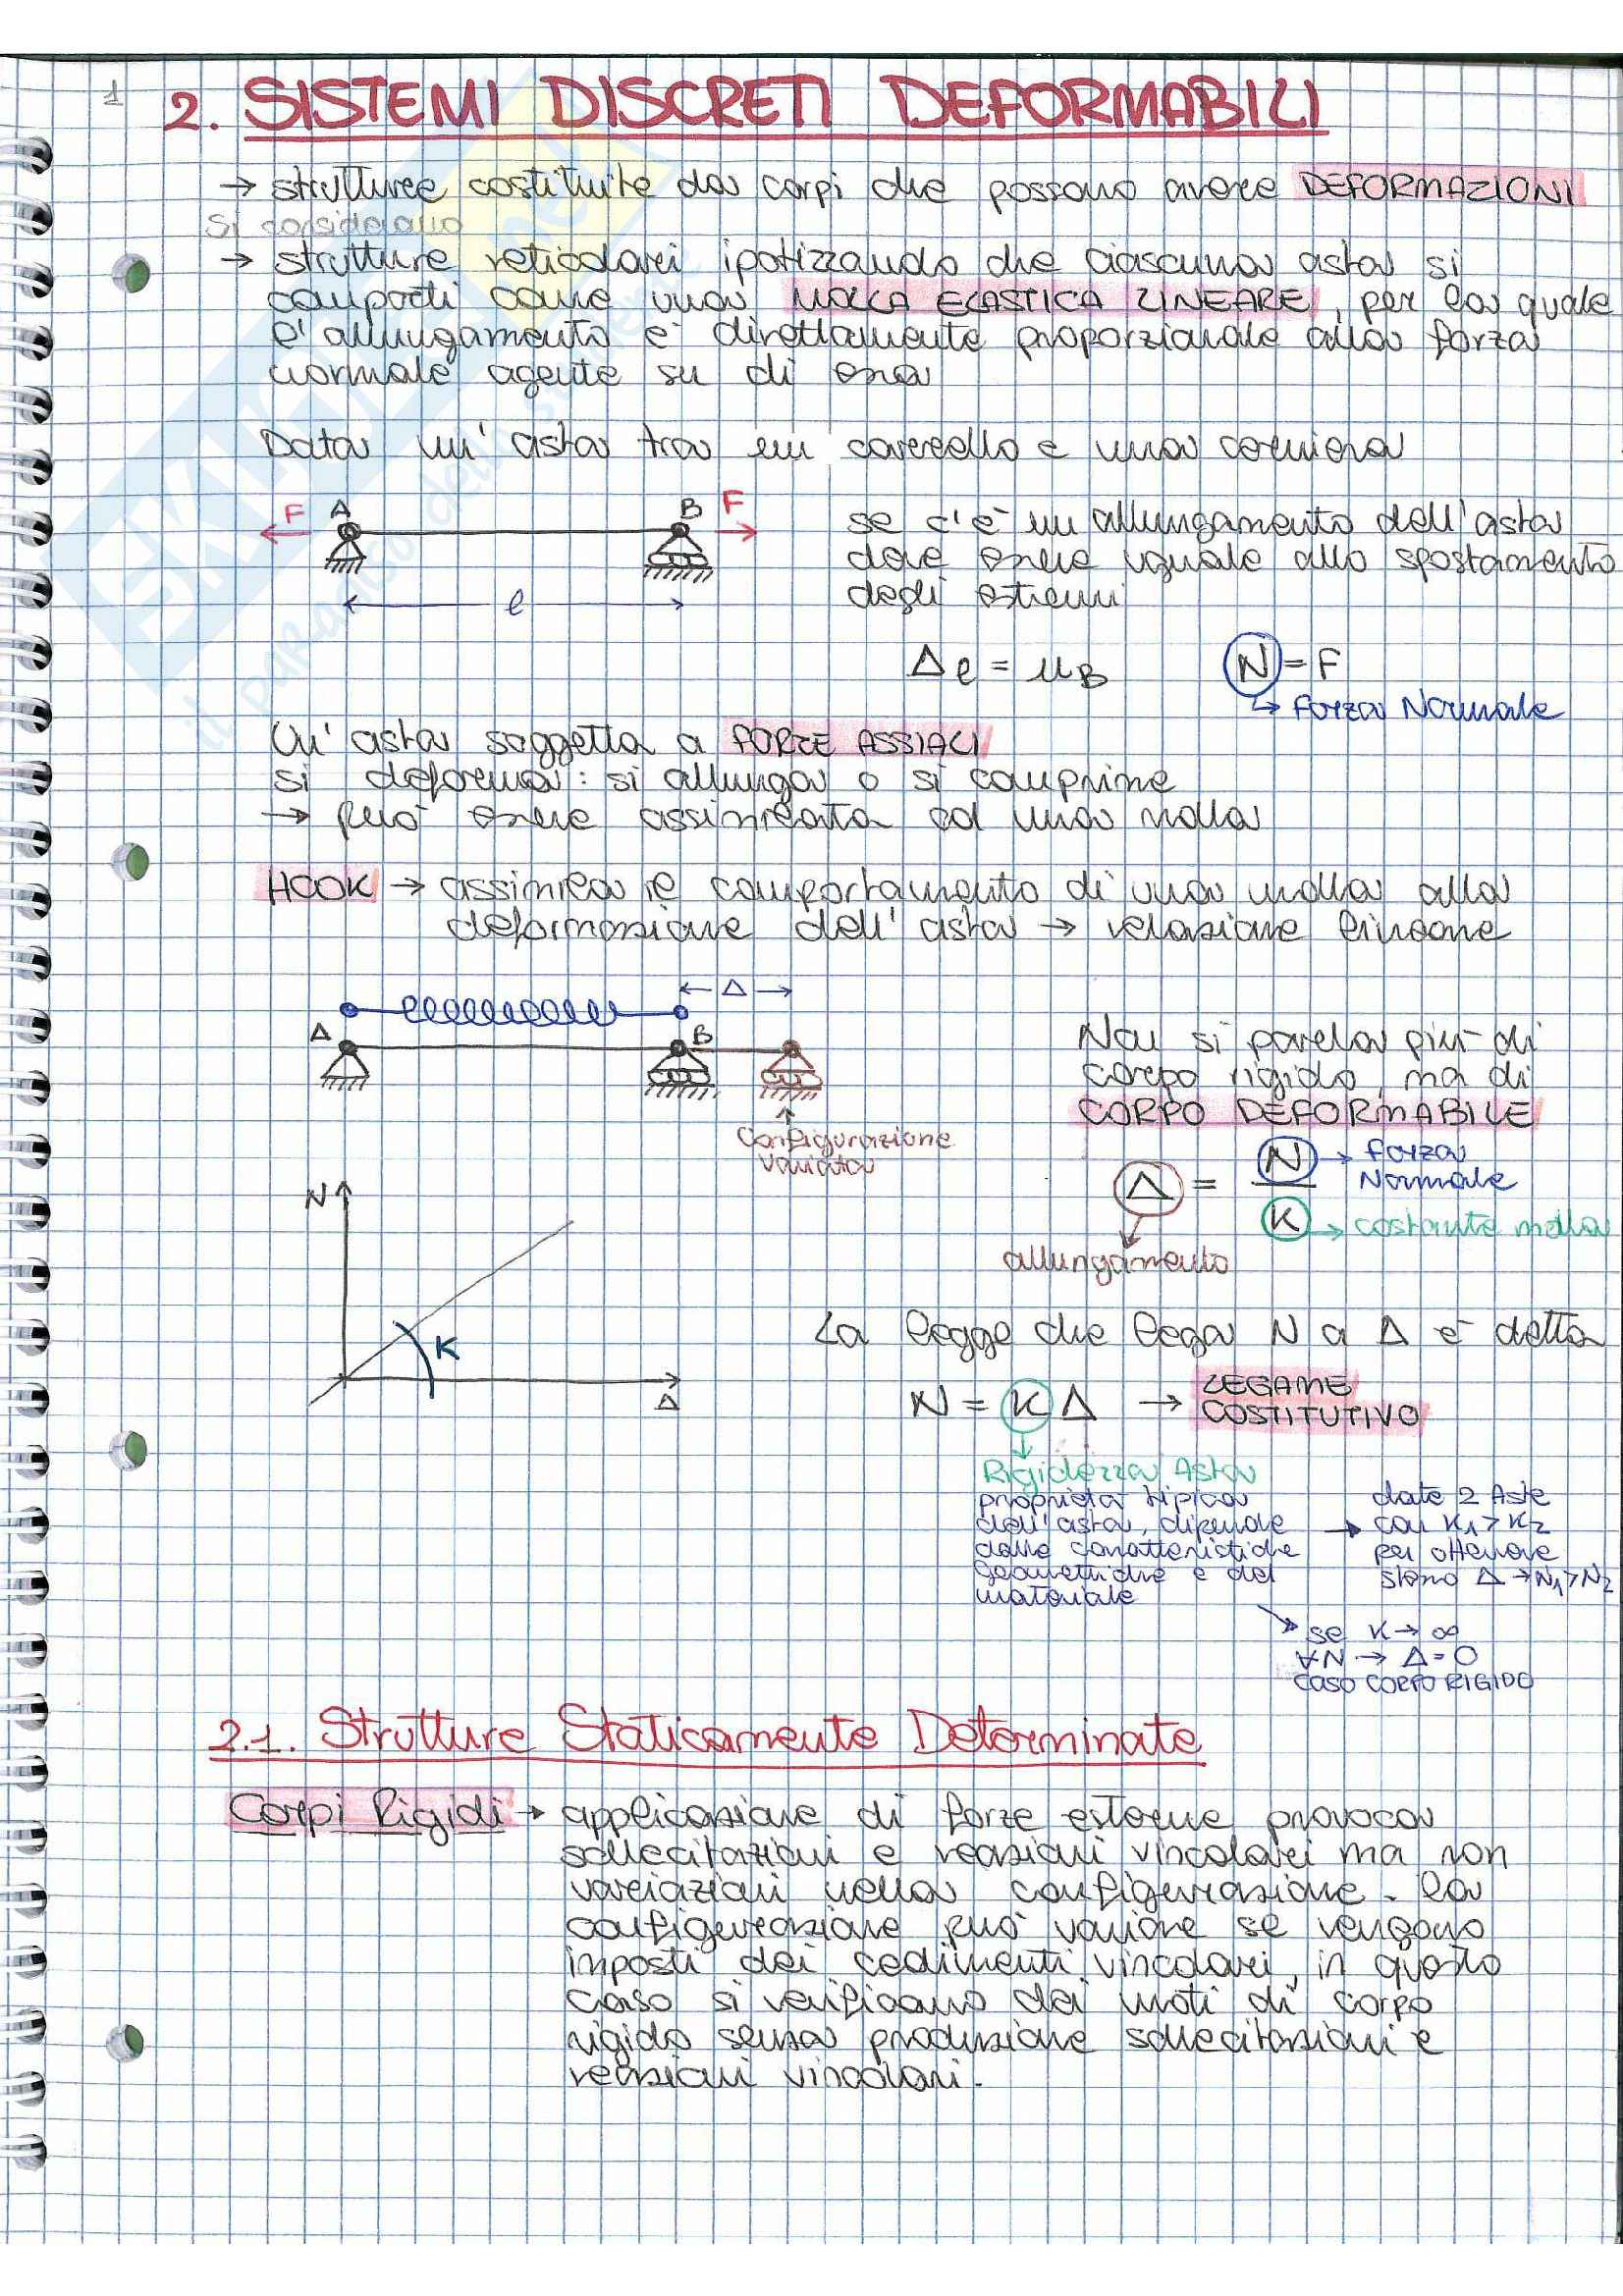 1
2. SISTEMI DISCRETI DEFORMABILI
→ strutture costituite da corpi che possono avere DEFORMAZIONI
Si considerano
→ strutture reticolari ipotizzando che ciascuna asta si
comporti come una MOLLA ELASTICA LINEARE, per la quale
l'allungamento è direttamente proporzionale alla forza
normale agente su di essa
Data un'asta tra un carrello e una cerniera
F A B F
se c'è un allungamento dell'asta
deve essere uguale allo spostamento
degli estremi
l
Δl = uB N = F
↳ forza Normale
Un'asta soggetta a FORZE ASSIALI
si deforma: si allunga o si comprime
→ può essere assimilata ad una molla
HOOK → assimila il comportamento di una molla alla
deformazione dell'asta → relazione lineare
← Δ →
A B
Non si parla più di
corpo rigido, ma di
CORPO DEFORMABILE
Configurazione
variata
Δ = N / K
N → forza Normale
K → costante molla
allungamento
N
K
Δ
La legge che lega N a Δ è detta
N = K Δ → LEGAME COSTITUTIVO
Rigidezza Asta
proprietà tipica
dell'asta, dipende
dalle caratteristiche
geometriche e del
materiale
→ date 2 Aste
con K1 > K2
per ottenere
stesso Δ → N1 > N2
→ se K → ∞
∀N → Δ = 0
CASO CORPO RIGIDO
2.1. Strutture Staticamente Determinate
Corpi Rigidi → applicazione di forze esterne provoca
sollecitazioni e reazioni vincolari ma non
variazioni nella configurazione. La
configurazione può variare se vengono
imposti dei cedimenti vincolari, in questo
caso si verificano dei moti di corpo
rigido senza produzione sollecitazioni e
reazioni vincolari.